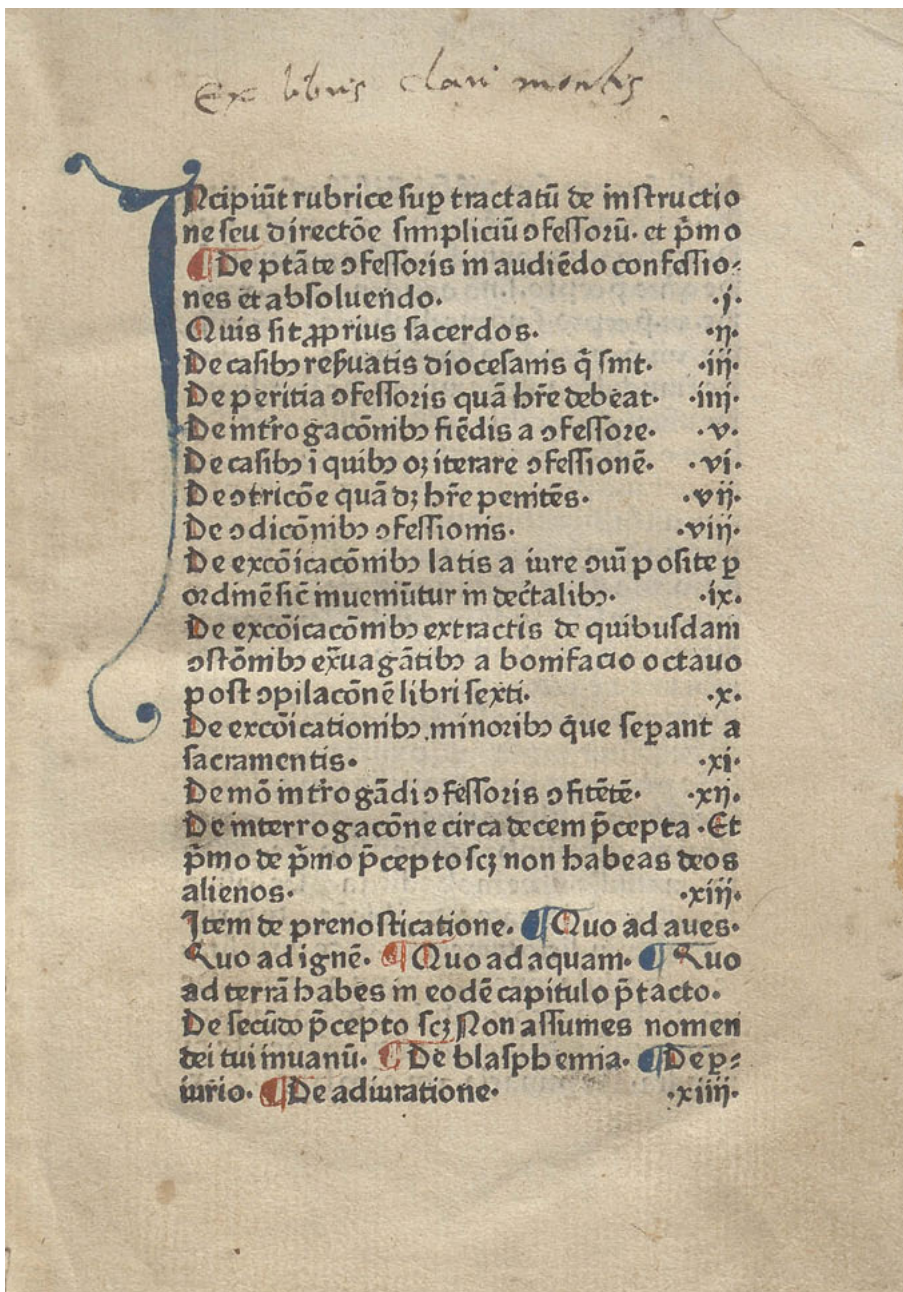 Ex libris clari montis
INcipiūt rubrice sup̲ tractatū de instructio
ne seu directōe simpliciū ↄfessorū. et p̄mo
¶ De ptāte ↄfessoris in audiēdo confessio⸗
nes et absoluendo. .j.
Quis sit ꝓprius sacerdos. .ij.
De casibꝫ reẜuatis diocesanis q̄ sint. .iij.
De peritia ↄfessoris quā hr̄e debeat. .iiij.
De intr̄ogacōnibꝫ fiēdis a ↄfessore. .v.
De casibꝫ ī quibꝫ oꝫ iterare ↄfessionē. .vi.
De ↄtricōe quā dꝫ hr̄e penitēs. .vij.
De ↄdicōnibꝫ ↄfessionis. .viij.
De excōicacōnibꝫ latis a iure ↄiū posite ꝑ
ordinē sic̄ inueniūtur in dec̄talibꝫ. .ix.
De excōicacōnibꝫ extractis de quibusdam
ↄstōnibꝫ ex̄uagātibꝫ a bonifacio octauo
post ↄpilacōnē libri sexti. .x.
De excōicationibꝫ minoribꝫ q̄ue seꝑant a
sacramentis. .xi.
De mō intr̄ogādi ↄfessoris ↄfitētē. .xij.
De interrogacōne circa decem p̄cepta. Et
p̄mo de p̄mo p̄cepto scꝫ non habeas deos
alienos. .xiij.
Item de prenosticatione. ¶ Quo ad aues.
Quo ad ignē. ¶ Quo ad aquam. ¶ Quo
ad terrā habes in eodē capitulo p̄tacto.
De secūdo p̄cepto scꝫ Non assumes nomen
dei tui inuanū. ¶ De blasphemia. ¶ De ꝑ⸗
iurio. ¶ De adiuratione. .xiiij.